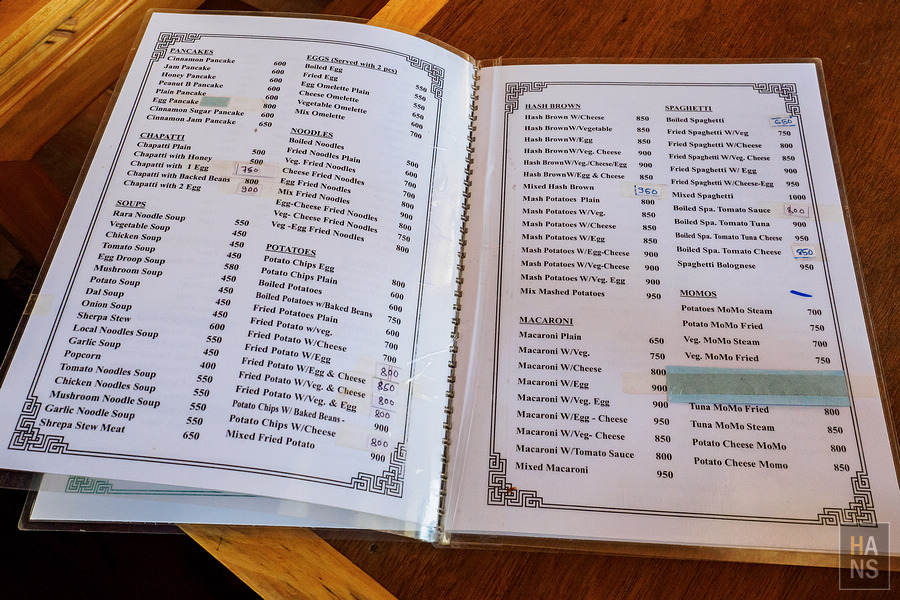 PANCAKES
Cinnamon Pancake 600
Jam Pancake 600
Honey Pancake 600
Peanut B Pancake 600
Plain Pancake 600
Egg Pancake 800
Cinnamon Sugar Pancake 600
Cinnamon Jam Pancake 650
CHAPATTI
Chapatti Plain 500
Chapatti with Honey 500
Chapatti with 1 Egg 750
Chapatti with Backed Beans 800
Chapatti with 2 Egg 900
SOUPS
Rara Noodle Soup 550
Vegetable Soup 450
Chicken Soup
Tomato Soup 450
Egg Droop Soup 450
Mushroom Soup 580
Potato Soup 450
Dal Soup 450
Onion Soup 450
Sherpa Stew 600
Local Noodles Soup 550
Garlic Soup 450
Popcorn 400
Tomato Noodles Soup 550
Chicken Noodles Soup 550
Mushroom Noodles Soup 550
Garlic Noodle Soup 550
Shrepa Stew Meat 650
EGGS (Served with 2 pcs)
Boiled Egg 550
Fried Egg 550
Egg Omelette Plain 550
Cheese Omelette 650
Vegetable Omelette 600
Mix Omelette 700
NOODLES
Boiled Noodles 500
Fried Noodles Plain 600
Veg. Fried Noodles 700
Cheese Fried Noodles 700
Egg Fried Noodles 800
Mix Fried Noodles 900
Egg-Cheese Fried Noodles 800
Veg- Cheese Fried Noodles 750
Veg -Egg Fried Noodles 800
POTATOES
Potato Chips Egg 800
Potato Chips Plain 600
Boiled Potatoes 600
Boiled Potatoes w/Baked Beans 750
Fried Potatoes Plain 600
Fried Potato w/veg. 700
Fried Potato W/Cheese 700
Fried Potato W/Egg 700
Fried Potato W/Egg & Cheese 800
Fried Potato W/Veg. & Cheese 850
Fried Potato W/Veg. & Egg 800
Potato Chips W/ Baked Beans - 800
Potato Chips W/Cheese 800
Mixed Fried Potato 900
HASH BROWN
Hash Brown W/Cheese 850
Hash BrownW/Vegetable 850
Hash BrownW/Egg 850
Hash BrownW/Veg. Cheese 900
Hash BrownW/Veg./Cheese/Egg 900
Hash BrownW/Egg & Cheese 850
Mixed Hash Brown 950
Mash Potatoes Plain 800
Mash Potatoes W/Veg. 850
Mash Potatoes W/Cheese 850
Mash Potatoes W/Egg 850
Mash Potatoes W/Egg-Cheese 900
Mash Potatoes W/Veg-Cheese 900
Mash Potatoes W/Veg. Egg 900
Mix Mashed Potatoes 950
MACARONI
Macaroni Plain 650
Macaroni W/Veg. 750
Macaroni W/Cheese 800
Macaroni W/Egg 900
Macaroni W/Veg. Egg 900
Macaroni W/Egg - Cheese 950
Macaroni W/Veg- Cheese 850
Macaroni W/Tomato Sauce 800
Mixed Macaroni 950
SPAGHETTI
Boiled Spaghetti 650
Fried Spaghetti W/Veg 750
Fried Spaghetti W/Cheese 800
Fried Spaghetti W/Veg. Cheese 850
Fried Spaghetti W/ Egg 900
Fried Spaghetti W/Cheese-Egg 950
Mixed Spaghetti 1000
Boiled Spa. Tomato Sauce 800
Boiled Spa. Tomato Tuna 900
Boiled Spa. Tomato Tuna Cheese 950
Boiled Spa. Tomato Cheese 850
Spaghetti Bolognese 950
MOMOS
Potatoes MoMo Steam 700
Potato MoMo Fried 750
Veg. MoMo Steam 700
Veg. MoMo Fried 750
Tuna MoMo Fried 800
Tuna MoMo Steam 850
Potato Cheese MoMo 800
Potato Cheese Momo 850
HANS